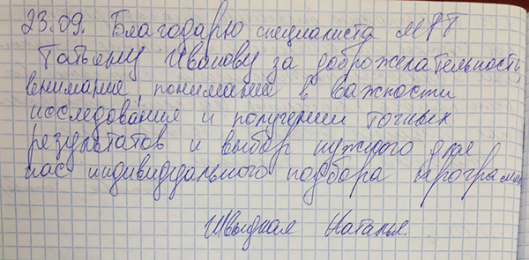 23.09. Благодарю специалиста МРТ
Татьяну Иванову за доброжелательность
внимание, понимание в важности
исследования и получении точных
результатов и выбор нужного для
нас индивидуального подбора программ
Швыдкая Наталья.